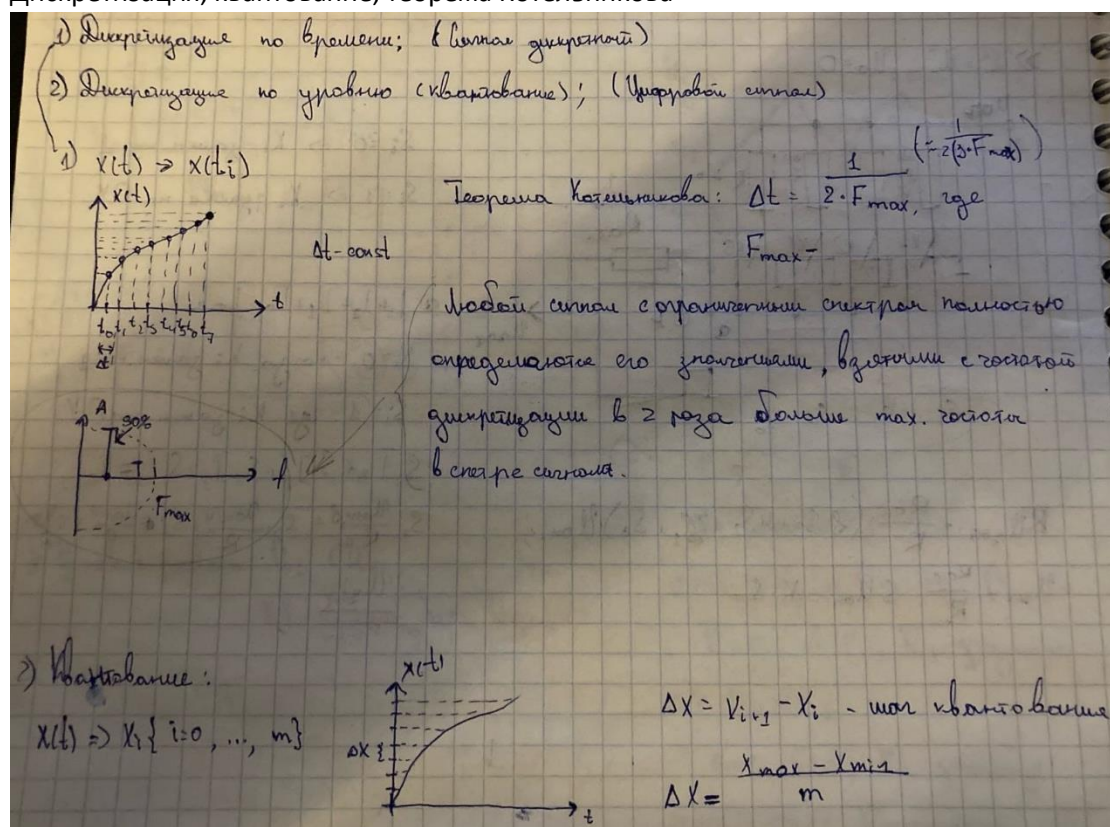 Дискретизация, квантование, теорема Котельникова
1) Дискретизация по времени; (Сигнал дискретный)
2) Дискретизация по уровню (квантование); (Цифровой сигнал)
1) x(t) → x(ti)
x(t)
t
t0 t1 t2 t3 t4 t5 t6 t7
Δt
Δt - const
Теорема Котельникова: Δt = 1 / 2·Fmax, где
(÷ 1 / 2(3·Fmax))
Fmax -
Любой сигнал с ограниченным спектром полностью
определяются его значениями, взятыми с частотой
дискретизации в 2 раза больше max. частоты
в спектре сигнала.
A
90%
f
Fmax
2) Квантование:
x(t) => Xi { i=0, ..., m}
x(t)
ΔX {
t
ΔX = Xi+1 - Xi - шаг квантования
ΔX = Xmax - Xmin / m